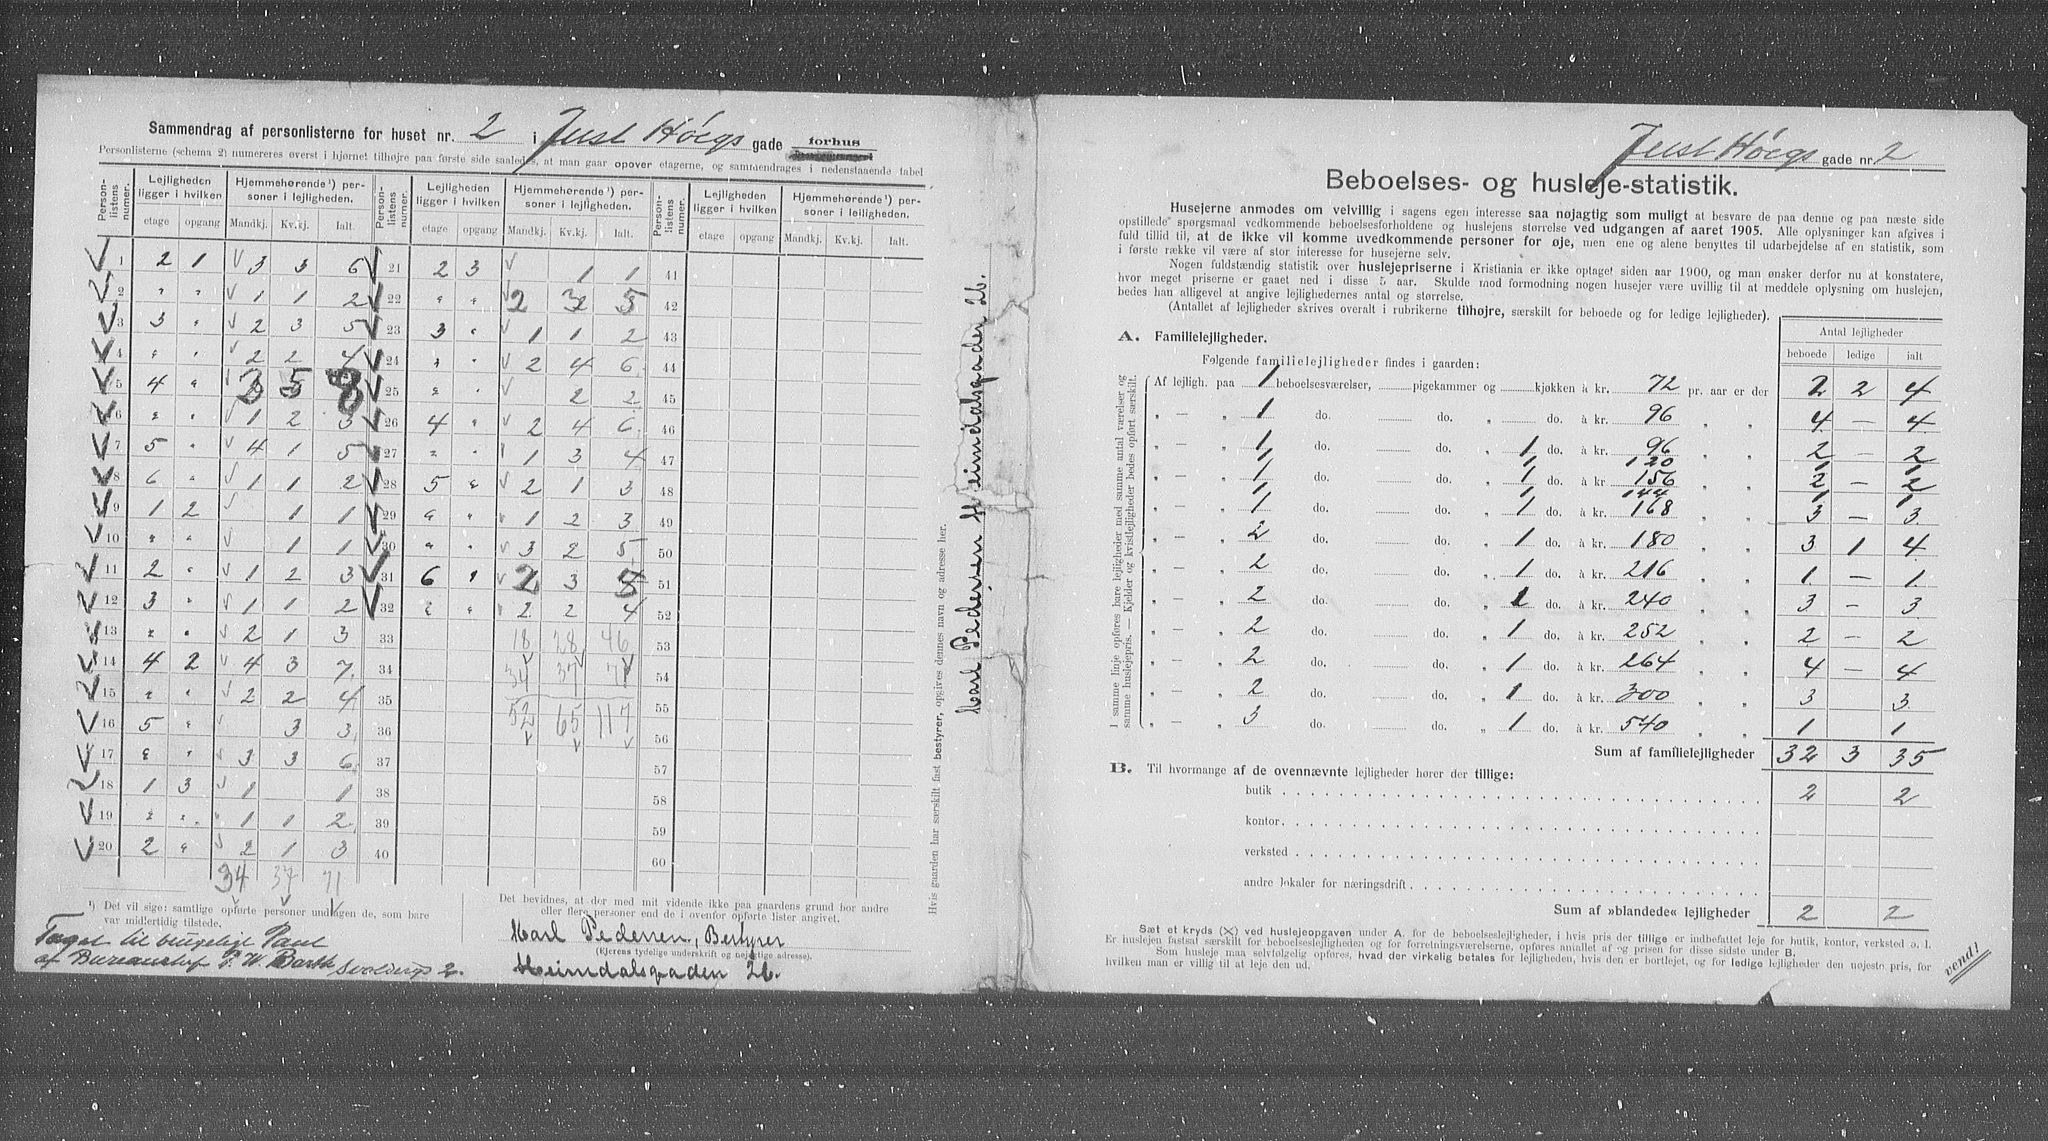 Sammendrag af personlisterne for huset nr. 2 i Just Høegs gade forhus
Personlisterne (schema 2) numereres øverst i hjørnet tilhøjre paa første side saaledes, at man gaar opover etagerne, og sammendrages i nedenstaaende tabel
Person-listens numer. | Lejligheden ligger i hvilken | Hjemmehørende¹) personer i lejligheden. | Person-listens numer. | Lejligheden ligger i hvilken | Hjemmehørende¹) personer i lejligheden. | Person-listens numer. | Lejligheden ligger i hvilken | Hjemmehørende¹) personer i lejligheden.
etage opgang Mandkj. Kv.kj. Ialt. etage opgang Mandkj. Kv.kj. Ialt. etage opgang Mandkj. Kv.kj. Ialt.
1 2 1 3 3 6 21 2 3 1 1 41
2 " " 1 1 2 22 " " 2 3 5 42
3 3 " 2 3 5 23 3 " 1 1 2 43
4 " " 2 2 4 24 " " 2 4 6 44
5 4 " 3 5 8 25 " " 2 2 45
6 " " 1 2 3 26 4 " 2 4 6 46
7 5 " 4 1 5 27 " " 1 3 4 47
8 6 " 1 1 2 28 5 " 2 1 3 48
9 1 2 1 1 29 " " 1 2 3 49
10 " " 1 1 30 " " 3 2 5 50
11 2 " 1 2 3 31 6 " 2 3 5 51
12 3 " 1 1 2 32 " " 2 2 4 52
13 " " 2 1 3 33 18 28 46 53
14 4 2 4 3 7 34 34 37 71 54
15 " " 2 2 4 35 52 65 117 55
16 5 " 3 3 36 56
17 " " 3 3 6 37 57
18 1 3 1 1 38 58
19 " " 1 1 2 39 59
20 2 " 2 1 3 40 60
34 37 71
¹) Det vil sige: samtlige opførte personer undtagen de, som bare
var midlertidig tilstede.
Det bevidnes, at der med mit vidende ikke paa gaardens grund bor andre
eller flere personer end de i ovenfor opførte lister angivet.
Karl Pedersen, Bestyrer
(Kjerens tydelige underskrift og nøjagtige adresse).
Heimdalsgaden 26.
af P. W. Barth 2.
Hvis gaarden har særskilt fast bestyrer, opgives dennes navn og adresse her.
Karl Pedersen Heimdalsgaden 26.
Just Høegs gade nr. 2
Beboelses- og husleje-statistik.
Husejerne anmodes om velvillig i sagens egen interesse saa nøjagtig som muligt at besvare de paa denne og paa næste side
opstillede spørgsmaal vedkommende beboelsesforholdene og huslejens størrelse ved udgangen af aaret 1905. Alle oplysninger kan afgives i
fuld tillid til, at de ikke vil komme uvedkommende personer for øje, men ene og alene benyttes til udarbejdelse af en statistik, som
i første række vil være af stor interesse for husejerne selv.
Nogen fuldstændig statistik over huslejepriserne i Kristiania er ikke optaget siden aar 1900, og man ønsker derfor nu at konstatere,
hvor meget priserne er gaaet ned i disse 5 aar. Skulde mod formodning nogen husejer være uvillig til at meddele oplysning om huslejen,
bedes han alligevel at angive lejlighedernes antal og størrelse.
(Antallet af lejligheder skrives overalt i rubrikerne tilhøjre, særskilt for beboede og for ledige lejligheder).
Antal lejligheder
beboede ledige ialt
A. Familielejligheder.
Følgende familielejligheder findes i gaarden:
I samme linje opføres bare lejligheder med samme antal værelser og samme huslejepris. — Kjelder og kvistlejligheder bedes opført særskilt.
Af lejligh. paa 1 beboelsesværelser, pigekammer og kjøkken à kr. 72 pr. aar er der 2 2 4
" — " 1 do. do. " do. à kr. 96 " " 4 — 4
" — " 1 do. do. " 1 do. à kr. 96 " " 2 — 2
1 1 120 1 1
" — " 1 do. do. " 1 do. à kr. 156 " " 2 — 2
1 1 144 1 1
" — " 1 do. do. " 1 do. à kr. 168 " " 3 — 3
" — " 2 do. do. " 1 do. à kr. 180 " " 3 1 4
" — " 2 do. do. " 1 do. à kr. 216 " " 1 — 1
" — " 2 do. do. " 1 do. à kr. 240 " " 3 — 3
" — " 2 do. do. " 1 do. à kr. 252 " " 2 — 2
" — " 2 do. do. " 1 do. à kr. 264 " " 4 — 4
" — " 2 do. do. " 1 do. à kr. 300 " " 3 3
" — " 3 do. do. " 1 do. à kr. 540 " " 1 1
Sum af familielejligheder 32 3 35
B. Til hvormange af de ovennævnte lejligheder hører der tillige:
butik 2 2
kontor
verksted
andre lokaler for næringsdrift
Sum af »blandede« lejligheder 2 2
Sæt et kryds (X) ved huslejeopgaven under A. for de beboelseslejligheder, i hvis pris der tillige er indbefattet leje for butik, kontor, verksted o. l.
Er huslejen fastsat særskilt for beboelseslejligheden og for forretningsværelserne, opføres antallet af og prisen for disse sidste under B.
Som husleje maa selvfølgelig opføres, hvad der virkelig betales for lejligheden, hvis den er bortlejet, og for ledige lejligheder den nøjeste pris, for
hvilken man er villig til at leje den ud.
vend!